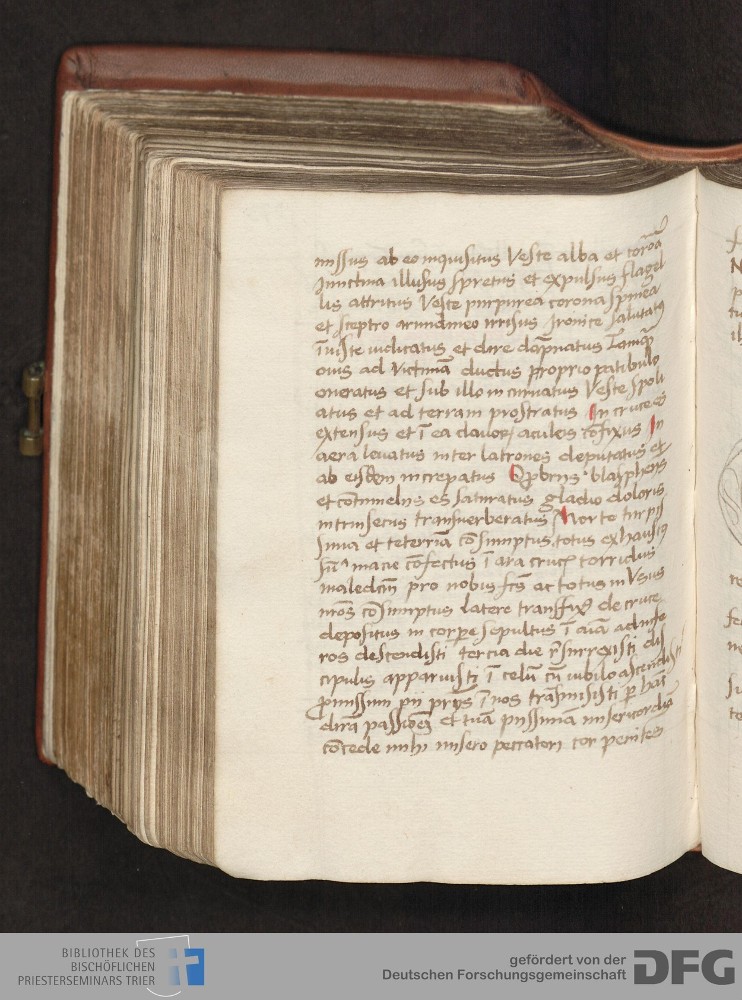 missus ab eo inquisitus Veste alba et corōā
Juncina illusus spretus et expulsus flagel
lis attritus Veste purpurea corona spinea
et sceptro arundineo irrisus Jronice salutatꝰ
īiuste iudicatus et dire dāpnatus Tamqȝ
ouis ad Victimā ductus proprio patibulo
oneratus et sub illo incuruatus Veste spoli
atus et ad terram prostratus In cruce es
extensus et ī ea clauorꝝ aculeis cōfixus In
aera leuatus inter latrones deputatus et
ab eisdem increpatus Opbrijs blasphemijs
et cōtumelijs es saturatus gladio doloris
intrinsecus transuerberatus Morte turpis
sima et teterrīa cōsumptus totus exhaustꝰ
macie cōfectus ī ara crucꝭ torridus
maledcm̄ pro nobis fcs̄ ac totus in Vsus
nrōs cōsumptus latere transfixꝰ de cruce
depositus in corpe sepultus ī aīā ad infe
ros descendisti tercia die resurrexisti dis
cipulis apparuisti ī celū cū iubilo ascendisti
promissum pij prīs ī nos trāsmisisti per hāc
dirā passioēȝ et tuā pijssimā misericordiā
cōcede mihi misero peccatori cor penitēs
BIBLIOTHEK DES
BISCHÖFLICHEN
PRIESTERSEMINARS TRIER
gefördert von der
Deutschen Forschungsgemeinschaft
DFG